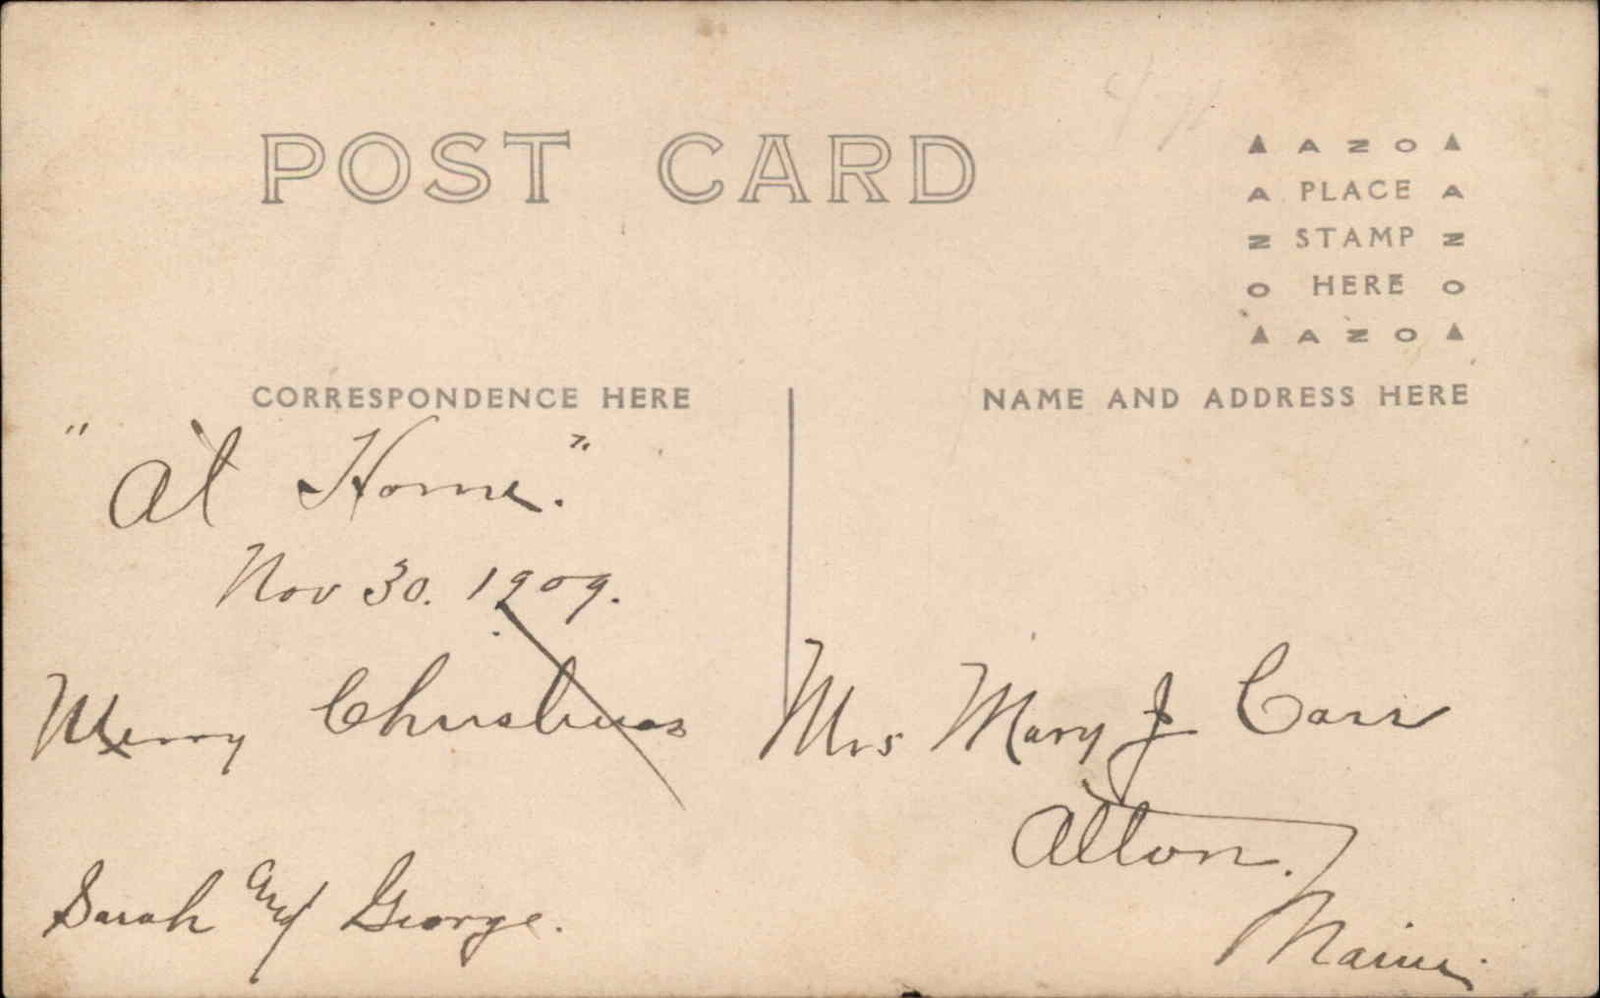 POST CARD
▲ A Z O ▲
A PLACE A
Z STAMP Z
O HERE O
▲ A Z O ▲
CORRESPONDENCE HERE
NAME AND ADDRESS HERE
"At Home."
Nov 30. 1909.
Merry Christmas
Sarah and George.
Mrs Mary J Carr
Alton.
Maine.